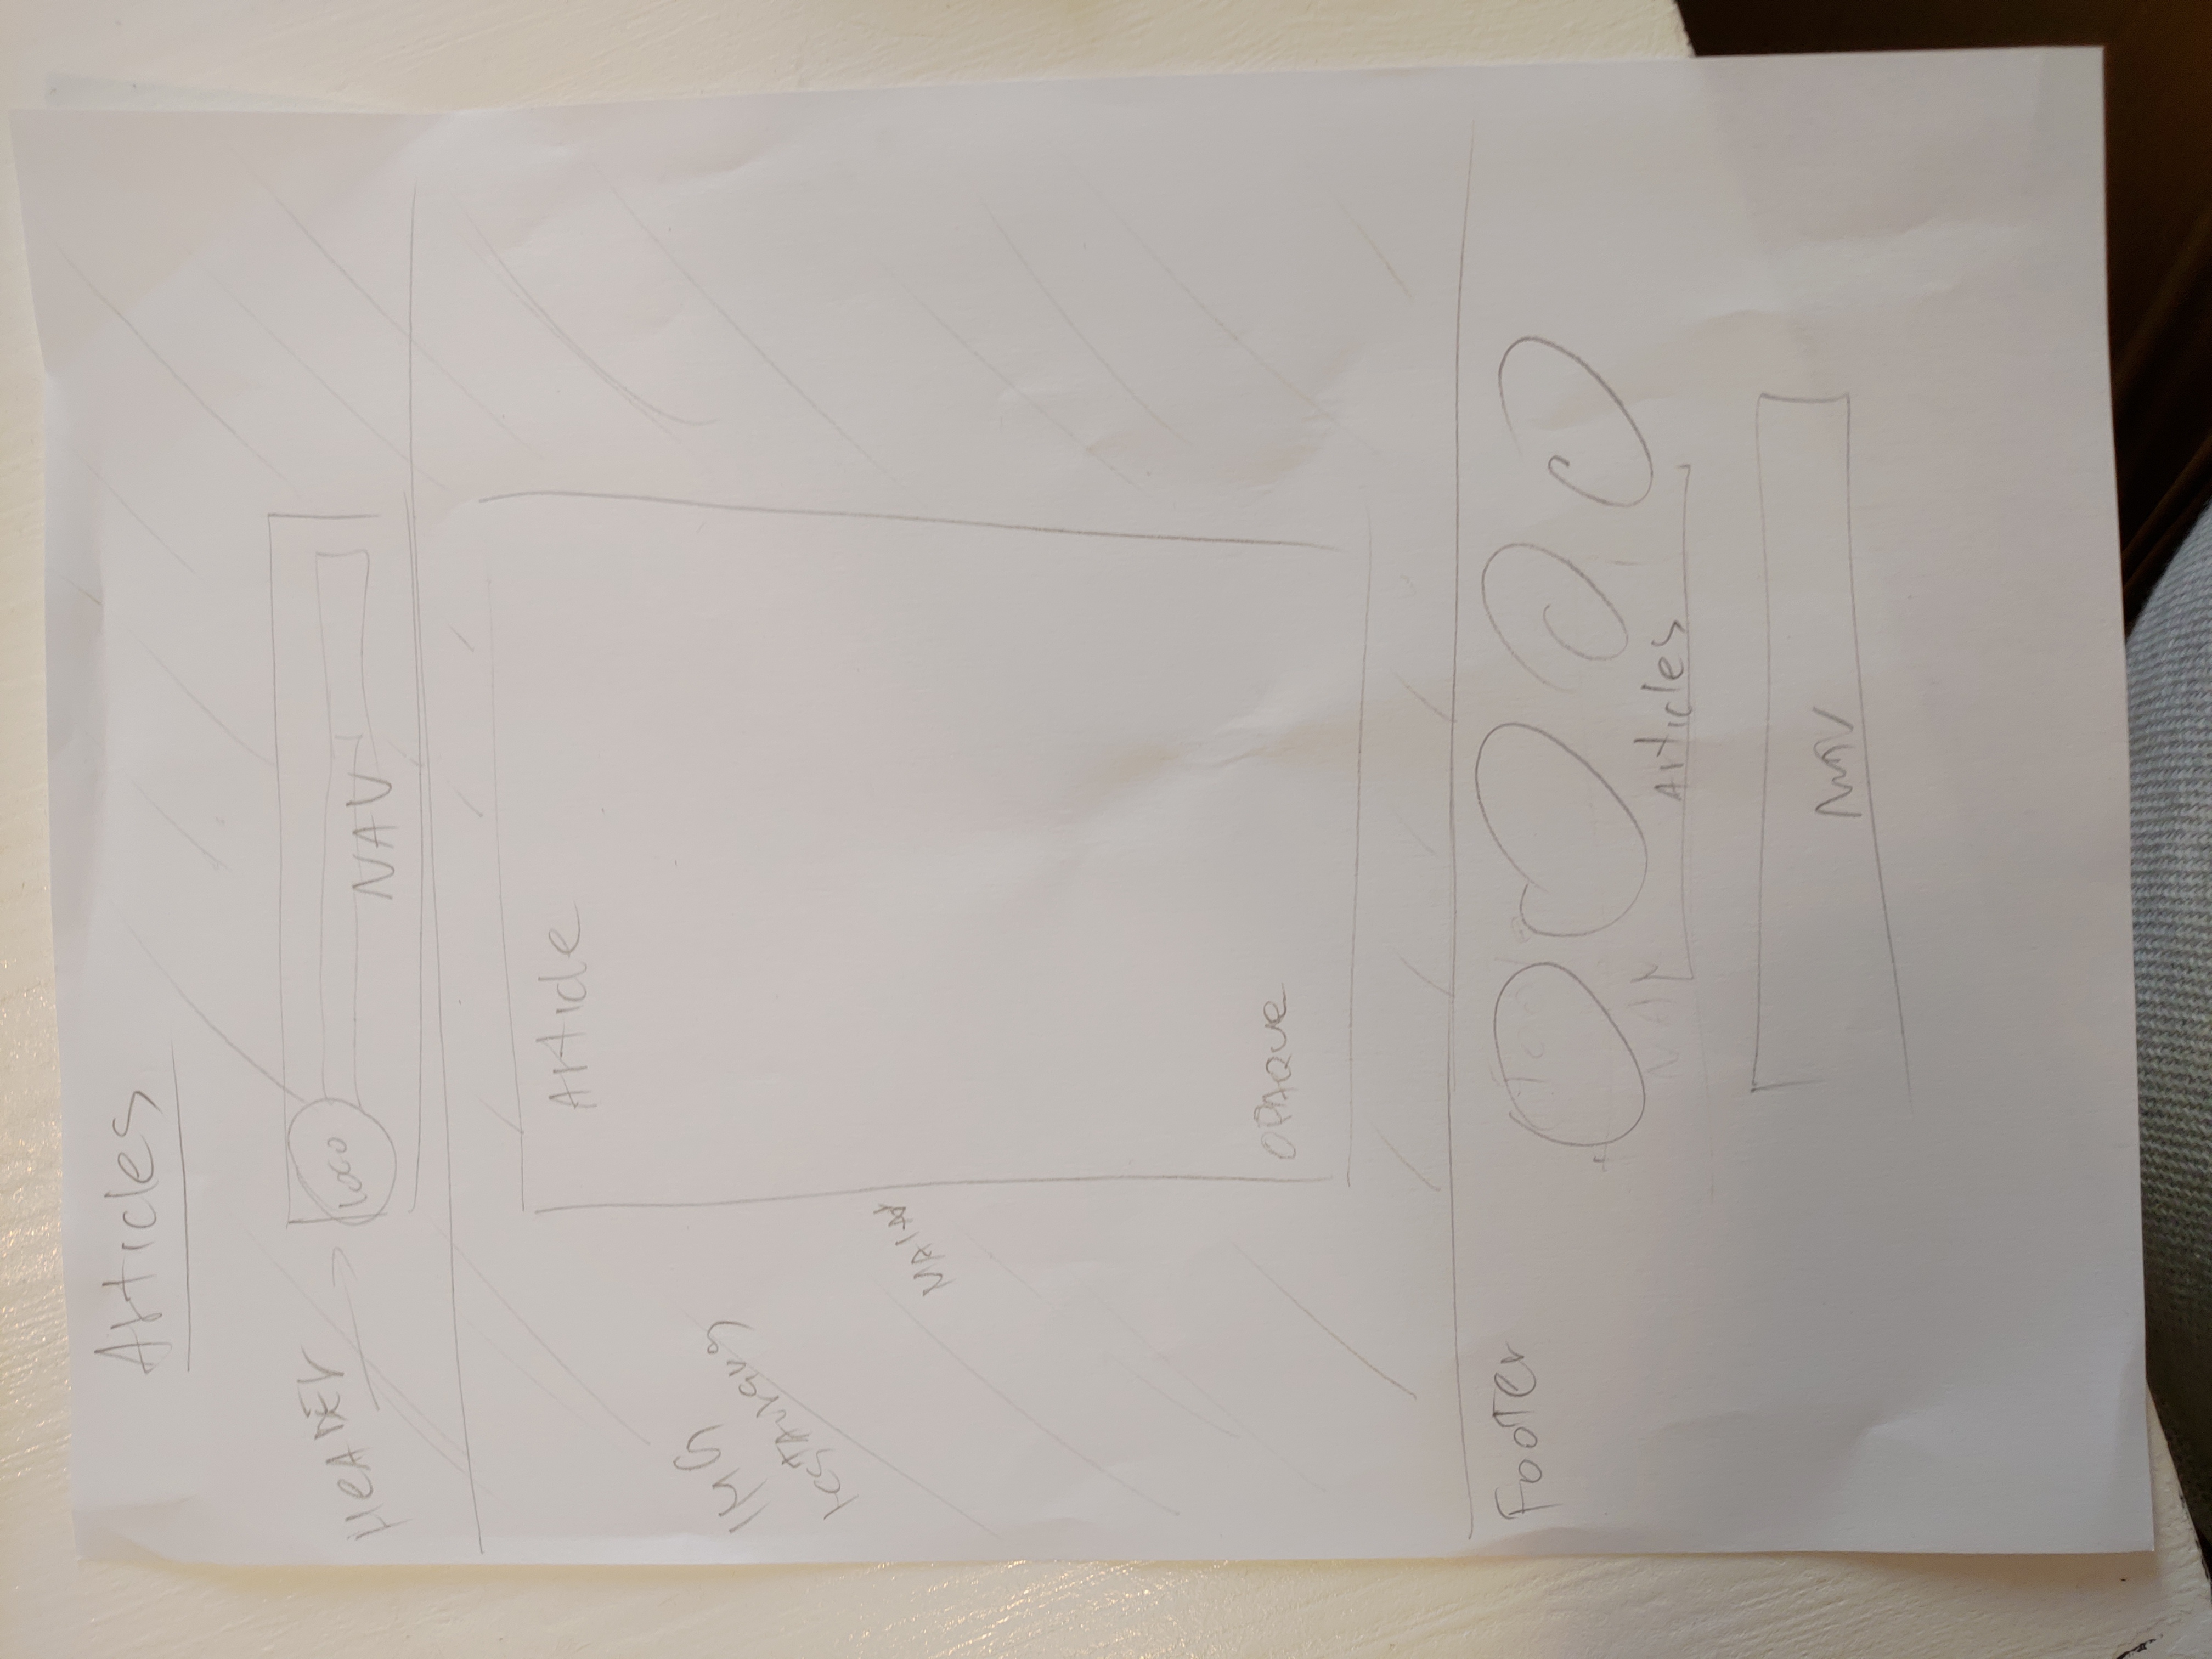 Articles
HEADEr
LOGO
NAV
Article
IMG
restaurang
MAIN
OPAQUE
Footer
Foote
NAV
Articles
NAV